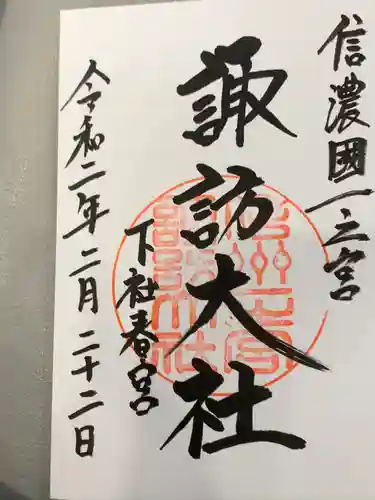 信濃國一之宮
諏訪大社
下社春宮
令和二年二月二十二日